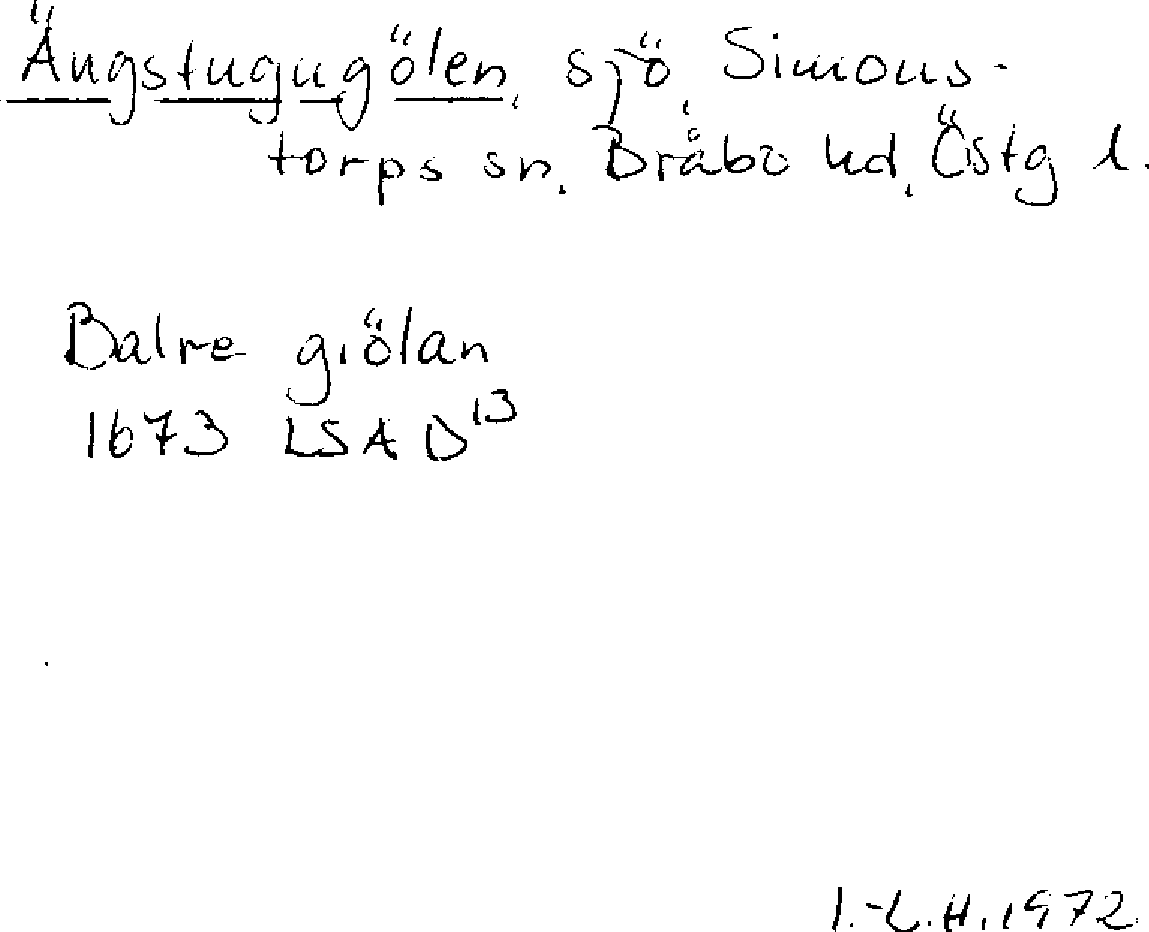 Ängstugugölen, sjö, Simons-
torps sn, Bråbo hd, Östg l.
Balre giölan
1673 LSA D13
I.-L.H. 1972